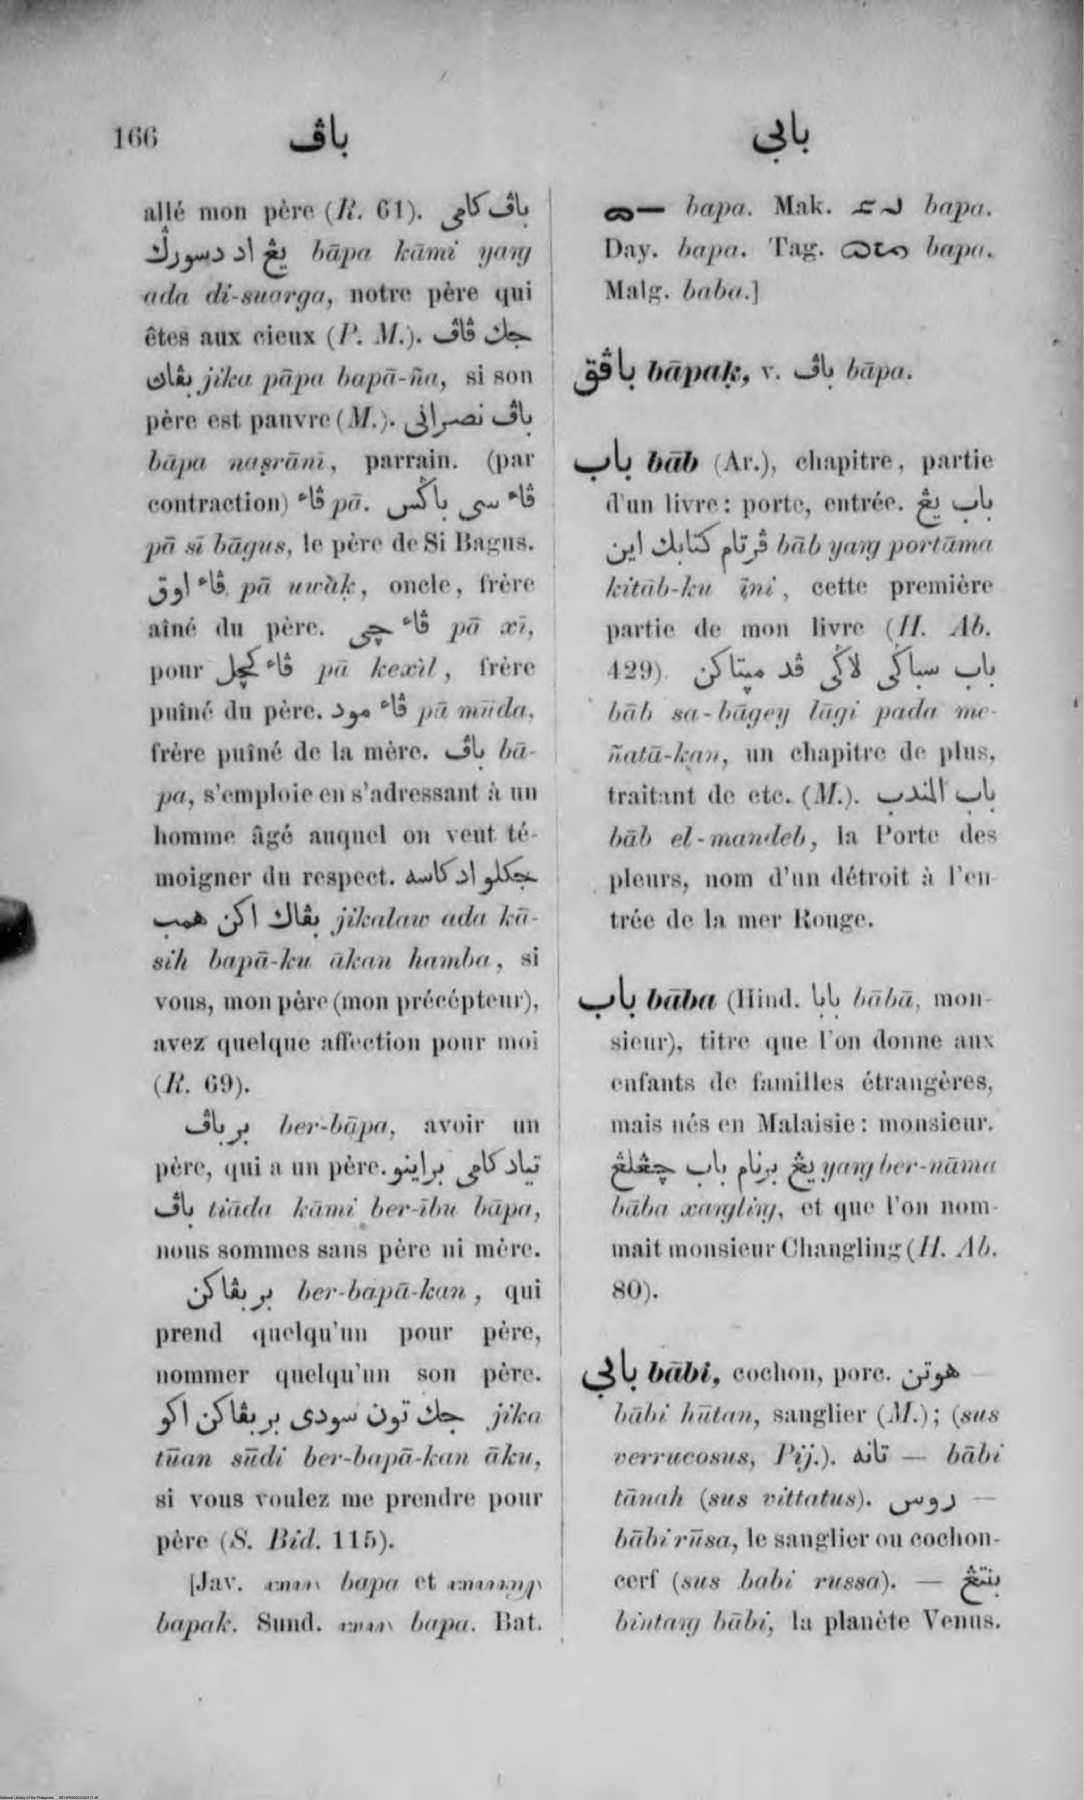 166 باڤ بابي
allé mon père (R. 61). باڤ كامي
يڠ اد دسورݢ bāpa kāmi yaŋg
ada di-suarga, notre père qui
êtes aux cieux (P. M.). جك ڤاڤ
بڤاڽ jika pāpa bapā-ña, si son
père est pauvre (M.). باڤ نصراني
bāpa naṣrānī, parrain. (par
contraction) ڤاء pā. ڤاء سي باݢس
pā sī bāgus, le père de Si Bagus.
ڤاء اوق pā uwàḳ, oncle, frère
aîné du père. ڤاء چي pā xī,
pour ڤاء كچل pā kexìl, frère
puîné du père. ڤاء مود pā mūda,
frère puîné de la mère. باڤ bā-
pa, s'emploie en s'adressant à un
homme âgé auquel on veut té-
moigner du respect. جكلو اد كاسه
بڤاك اكن همب jikalaw ada kā-
sih bapā-ku ākan hamba, si
vous, mon père (mon précépteur),
avez quelque affection pour moi
(R. 69).
برباڤ ber-bāpa, avoir un
père, qui a un père. تياد كامي برايبو
باڤ tiāda kāmi ber-ību bāpa,
nous sommes sans père ni mère.
بربڤاكن ber-bapā-kan, qui
prend quelqu'un pour père,
nommer quelqu'un son père.
جك تون سودي بربڤاكن اكو jika
tūan sūdi ber-bapā-kan āku,
si vous voulez me prendre pour
père (S. Bid. 115).
[Jav. bapa et
bapak. Sund. bapa. Bat.
bapa. Mak. bapa.
Day. bapa. Tag. bapa.
Malg. baba.]
باڤق bāpaḳ, v. باڤ bāpa.
باب bāb (Ar.), chapitre, partie
d'un livre: porte, entrée. باب يڠ
ڤرتام كتابك اين bāb yaŋg portāma
kitāb-ku īni, cette première
partie de mon livre (H. Ab.
429). باب سباݢي لاݢي ڤد مڽتاكن
bāb sa-bāgey lāgi pada me-
ñatā-kan, un chapitre de plus,
traitant de etc. (M.). باب المندب
bāb el-mandeb, la Porte des
pleurs, nom d'un détroit à l'en-
trée de la mer Rouge.
باب bāba (Hind. بابا bābā, mon-
sieur), titre que l'on donne aux
enfants de familles étrangères,
mais nés en Malaisie: monsieur.
يڠ برنام باب چڠلڠ yaŋg ber-nāma
bāba xaŋgliŋg, et que l'on nom-
mait monsieur Changling (H. Ab.
80).
بابي bābi, cochon, porc. هوتن —
bābi hūtan, sanglier (M.); (sus
verrucosus, Pij.). تانه — bābi
tānah (sus vittatus). روس —
bābi rūsa, le sanglier ou cochon-
cerf (sus babi russa). — بنتڠ
bintaŋg bābi, la planète Venus.